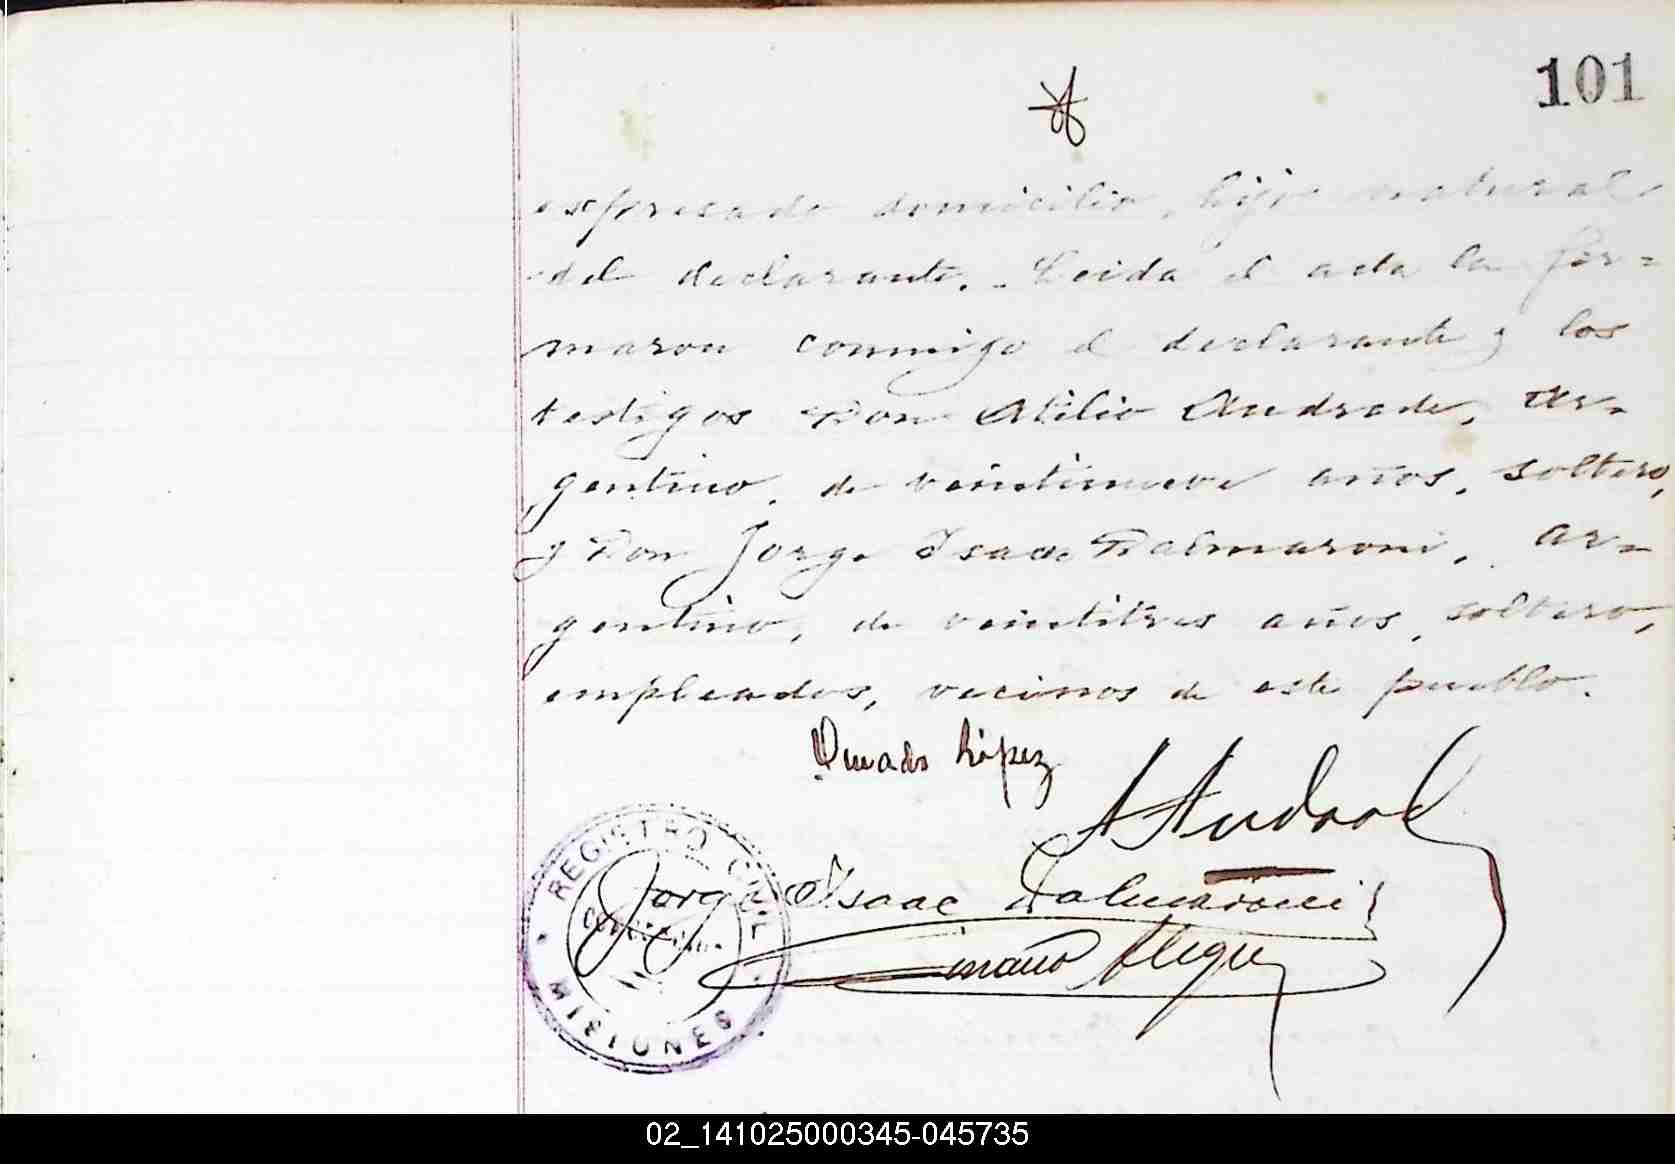 101
expresado domicilio, hijo natural
del declarante. Leida el acta la fir=
maron conmigo el declarante y los
testigos Don Atilio Andrade, Ar=
gentino, de veintinueve años, soltero,
y Don Jorge Isaac Dalmaroni, ar=
gentino, de veintitres años, soltero,
empleados, vecinos de este pueblo.
López
A Andrade
Jorge Isaac Dalmaroni
Alegre
REGISTRO CIVIL
MISIONES
02_141025000345-045735